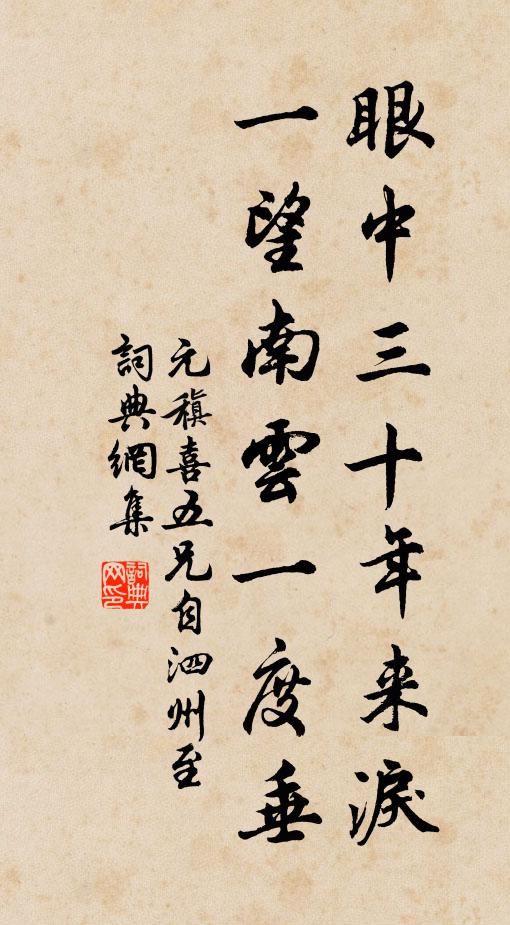 眼中三十年来淚
一望南雲一度垂
元稹喜五兄自泗州至
詞典網集
詞典网印